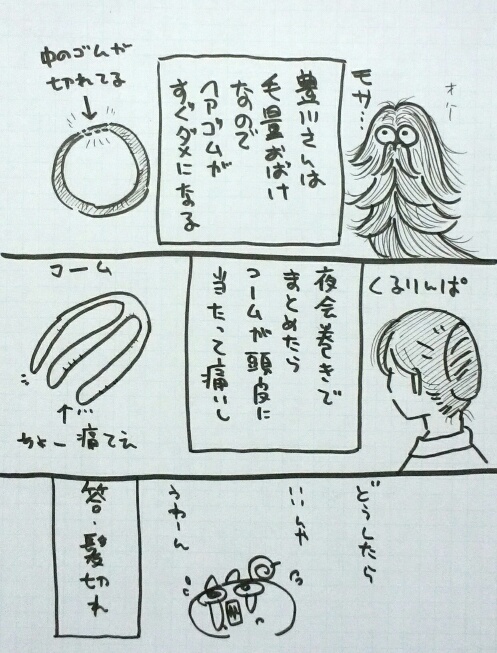 モサ…
オーー
豊川さんは
毛量おばけ
なので
ヘアゴムが
すぐダメになる
中のゴムが
切れてる
くるりんぱ
夜会巻きで
まとめたら
コームが頭皮に
当たって痛いし
コーム
ちょー痛てえ
どうしたら
いいんや
うわーん
答・髪切れ